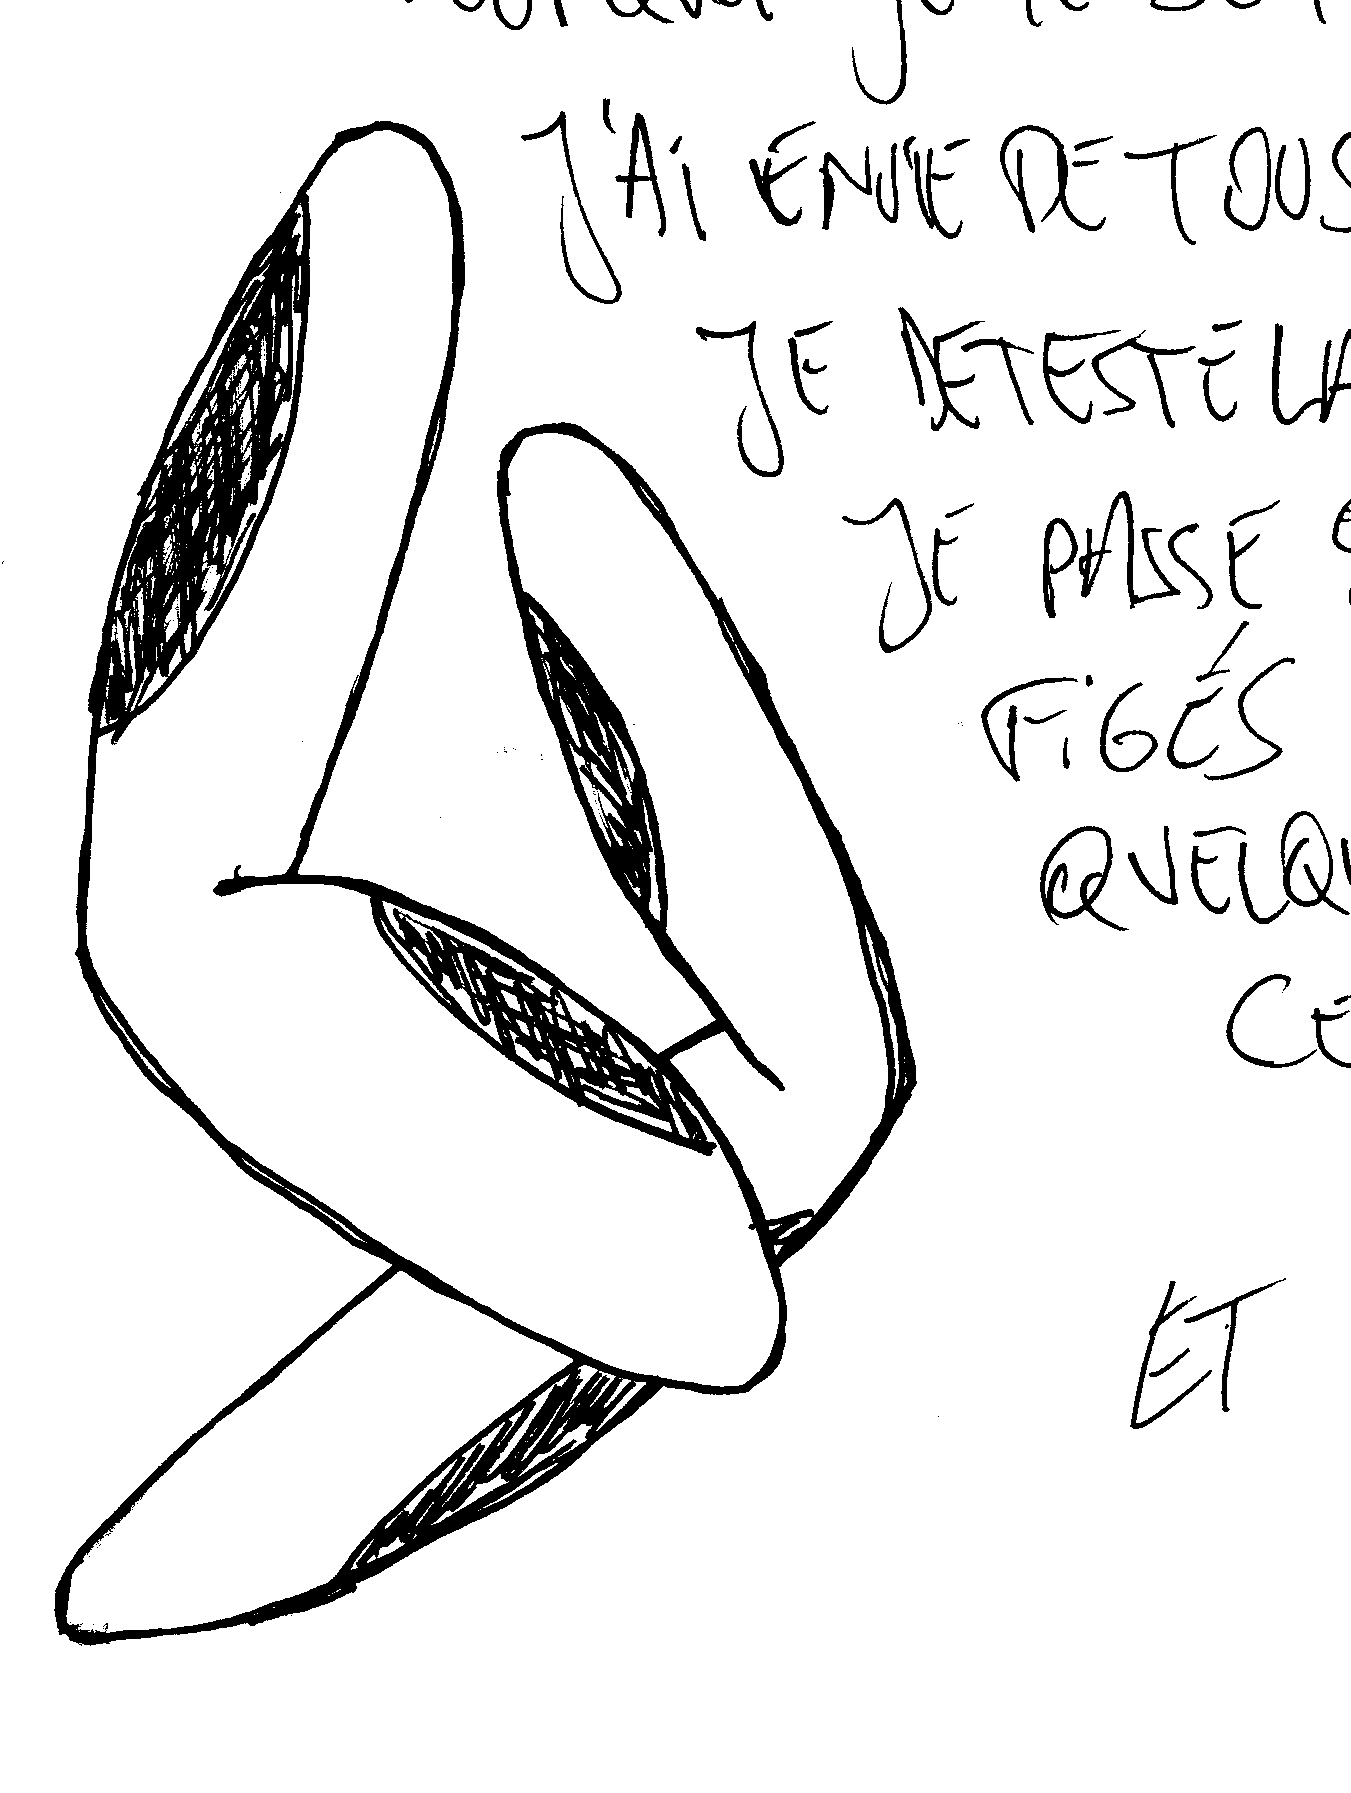 J'AI ENVIE DE TOUS
JE DETESTE LA
JE PASSE
FIGÉS
QUELQU
CE
ET